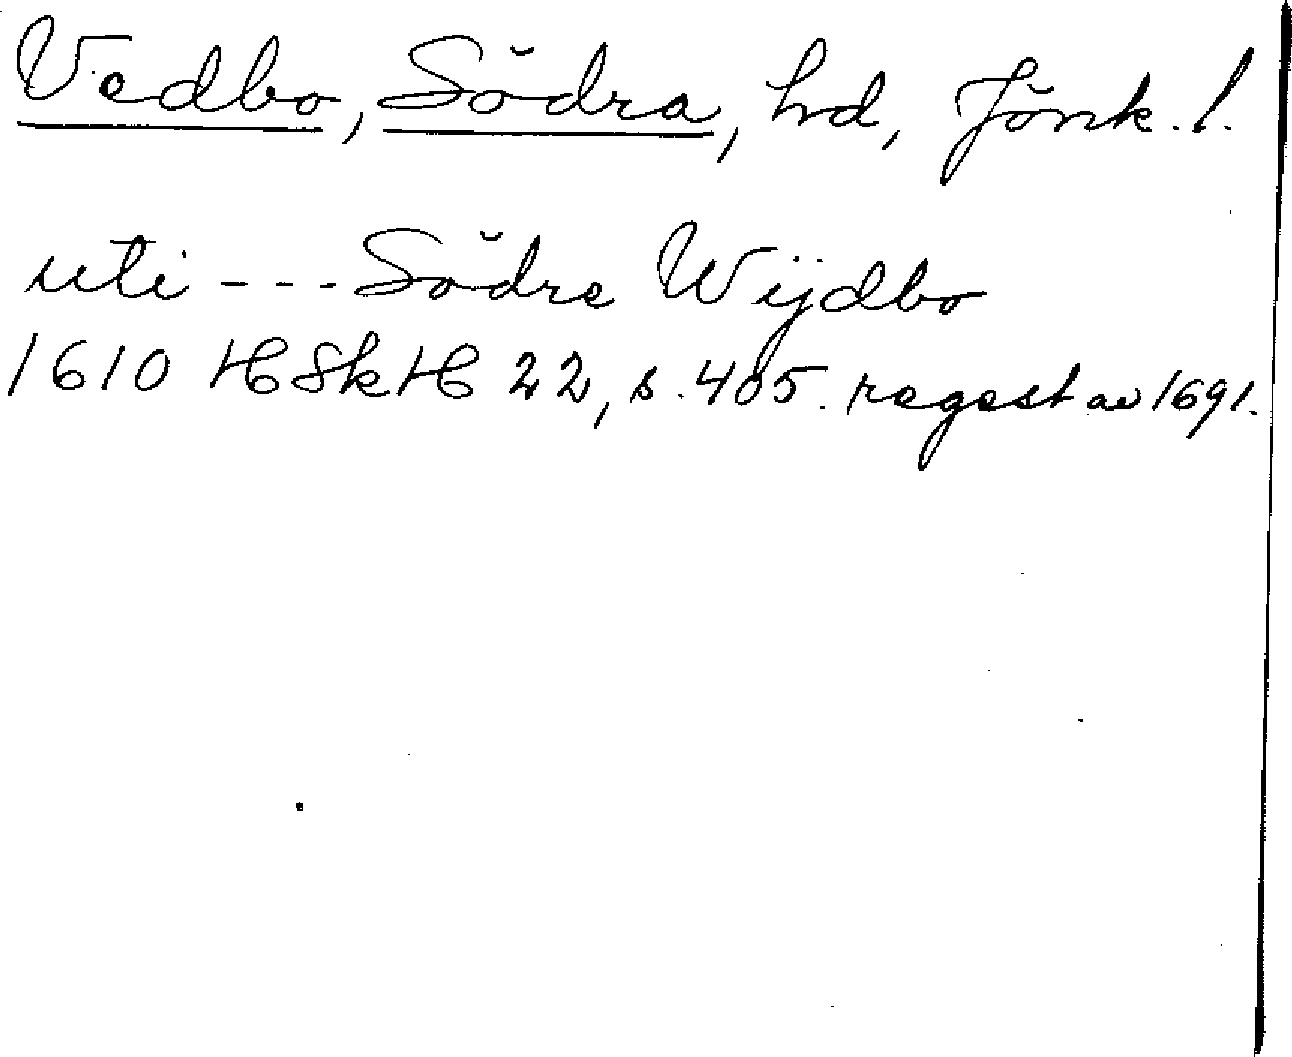 Vedbo, Södra, hd, Jönk. l.
uti --- Södre Wijdbo
1610 HSkH 22, s. 405. regest av 1691.